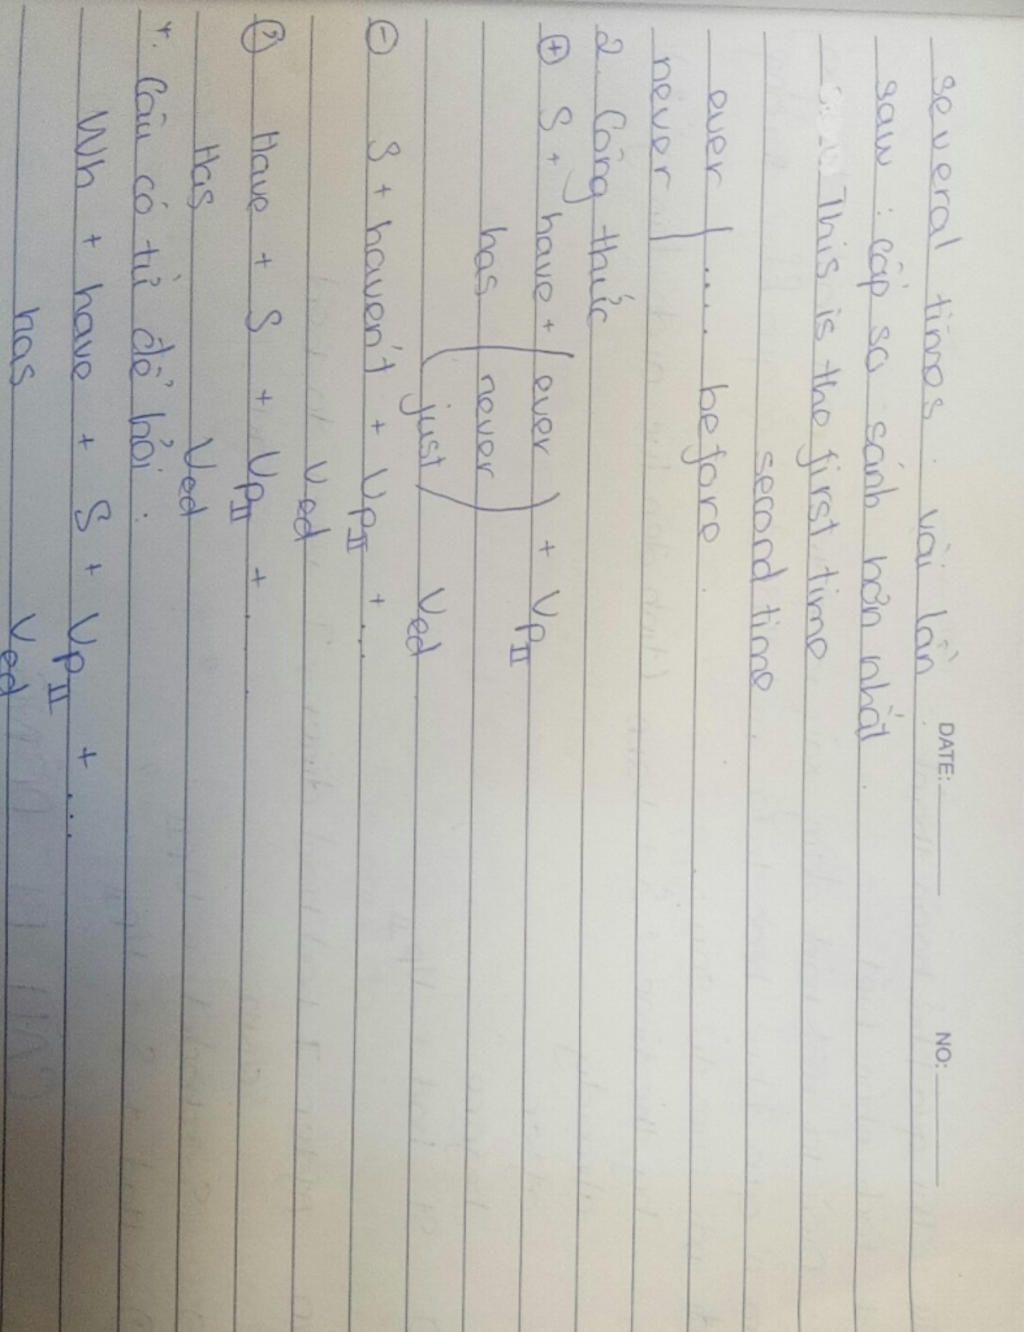 DATE: NO:
several times. vài lần
saw : cấp so sánh hơn nhất.
This is the first time
second time
ever .... before.
never
2. Công thức
(+) S + have + (ever) + VpII
has (never)
(just) Ved
(-) S + haven't + VpII + ...
Ved
(?) Have + S + VpII + .....
Has Ved
*. Câu có từ để hỏi.
Wh + have + S + VpII + ...
has Ved